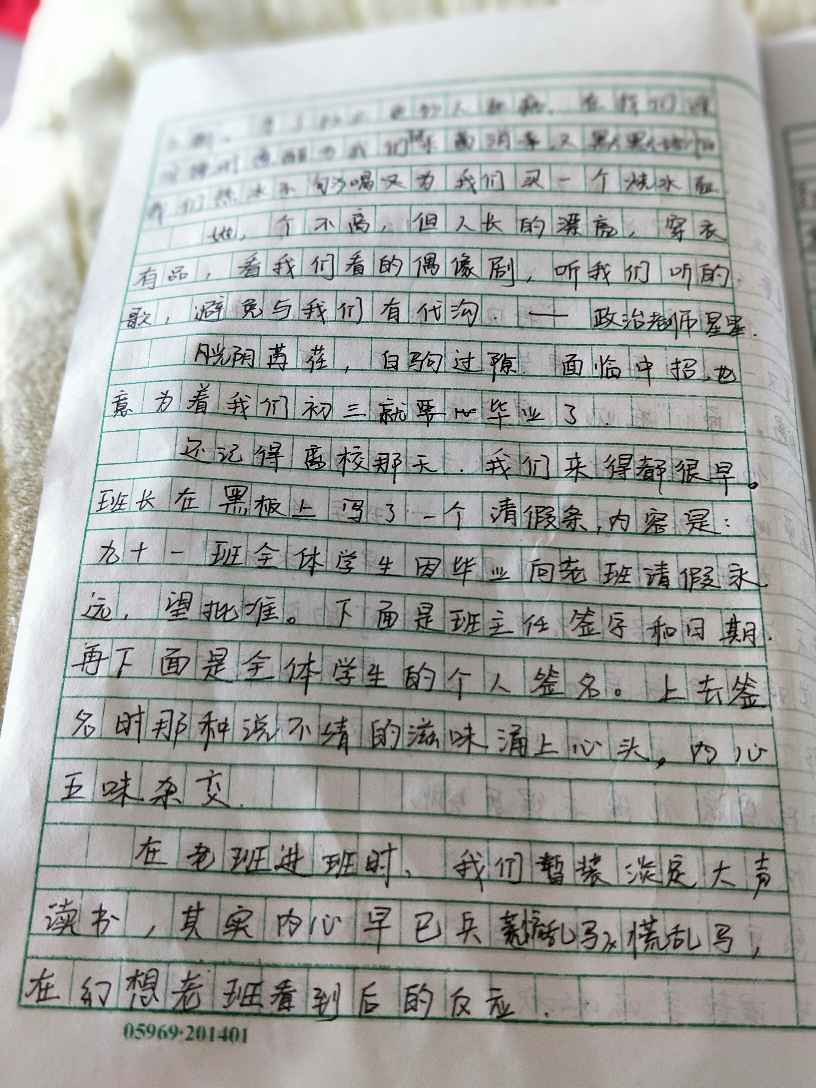 人
我们热水不够喝又为我们买一个烧水壶.
她，个不高，但人长的漂亮，穿衣
有品，看我们看的偶像剧，听我们听的
歌，避免与我们有代沟.——政治老师星星.
时光荫苒，白驹过隙.面临中招,也
意为着我们初三就要毕业了.
还记得离校那天.我们来得都很早。
班长在黑板上写了一个请假条,内容是：
九十一班全体学生因毕业向老班请假永
远，望批准。下面是班主任签字和日期.
再下面是全体学生的个人签名。上去签
名时那种说不清的滋味涌上心头，内心
五味杂交.
在老班进班时、我们暂装淡定大声
读书，其实内心早已兵慌乱马，
在幻想老班看到后的反应.
05969·201401